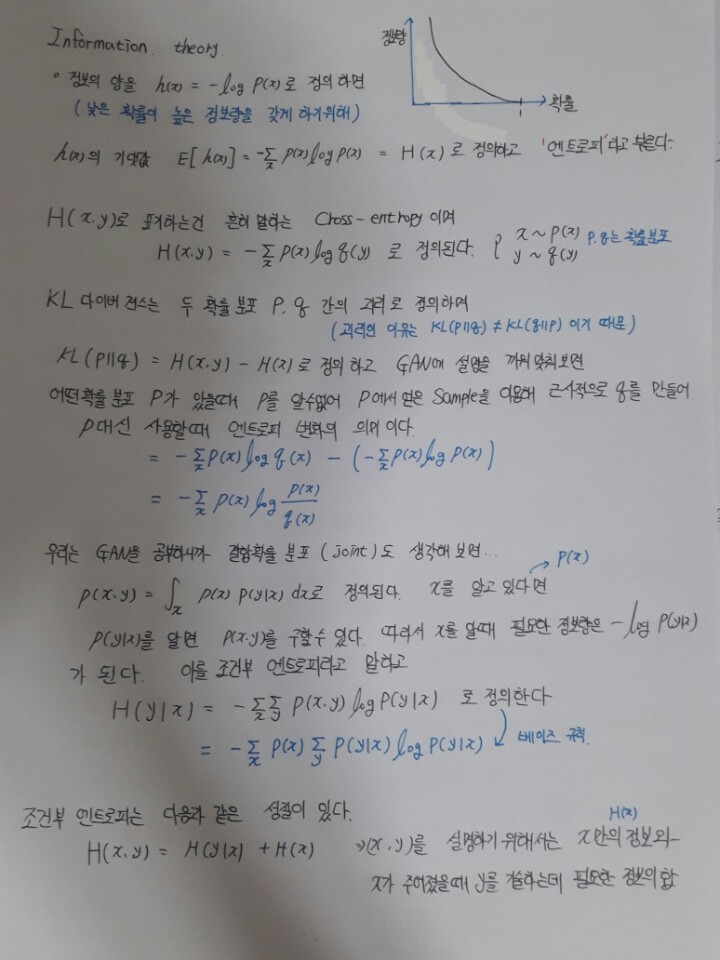 Information theory.
정보량
확률
1
∘ 정보의 양을 h(x) = -log P(x)로 정의 하면
(낮은 확률이 높은 정보량을 갖게 하기위해)
h(x)의 기댓값 E[h(x)] = -Σₓ P(x)log P(x) = H(x)로 정의하고 '엔트로피'라고 부른다
H(x.y)로 표기하는건 흔히 말하는 Cross-entropy 이며
H(x.y) = -Σₓ P(x) log q(y) 로 정의된다. { x ~ p(x) y ~ q(y) P.q는 확률분포
KL 다이버전스는 두 확률 분포 P. q 간의 괴리로 정의하며
(괴리인 이유는 KL(p||q) ≠ KL(q||p) 이기 때문)
KL(p||q) = H(x.y) - H(x)로 정의 하고 GAN에 설명을 끼워 맞춰보면
어떤확률 분포 P가 있을때 P를 알수없어 P에서 얻은 Sample을 이용해 근사적으로 q를 만들어
P대신 사용할때 엔트로피 변화의 의미 이다.
= -Σₓ P(x) log q(x) - (-Σₓ P(x) log P(x))
= -Σₓ P(x) log P(x)/q(x)
우리는 GAN을 공부하니까 결합확률 분포 (joint)도 생각해 보면...
P(x.y) = ∫ₓ P(x) P(y|x) dx로 정의된다. x를 알고 있다면 → P(x)
P(y|x)를 알면 P(x.y)를 구할수 있다. 따라서 x를 알때 필요한 정보량은 -log P(y|x)
가 된다. 이를 조건부 엔트로피라고 말하고
H(y|x) = -ΣₓΣᵧ P(x.y) log P(y|x) 로 정의한다
= -Σₓ P(x) Σᵧ P(y|x) log P(y|x) 베이즈 규칙.
조건부 엔트로피는 다음과 같은 성질이 있다.
H(x)
H(x.y) = H(y|x) + H(x) ⇒ (x.y)를 설명하기 위해서는 x만의 정보와
x가 주어졌을때 y를 기술하는데 필요한 정보의 합